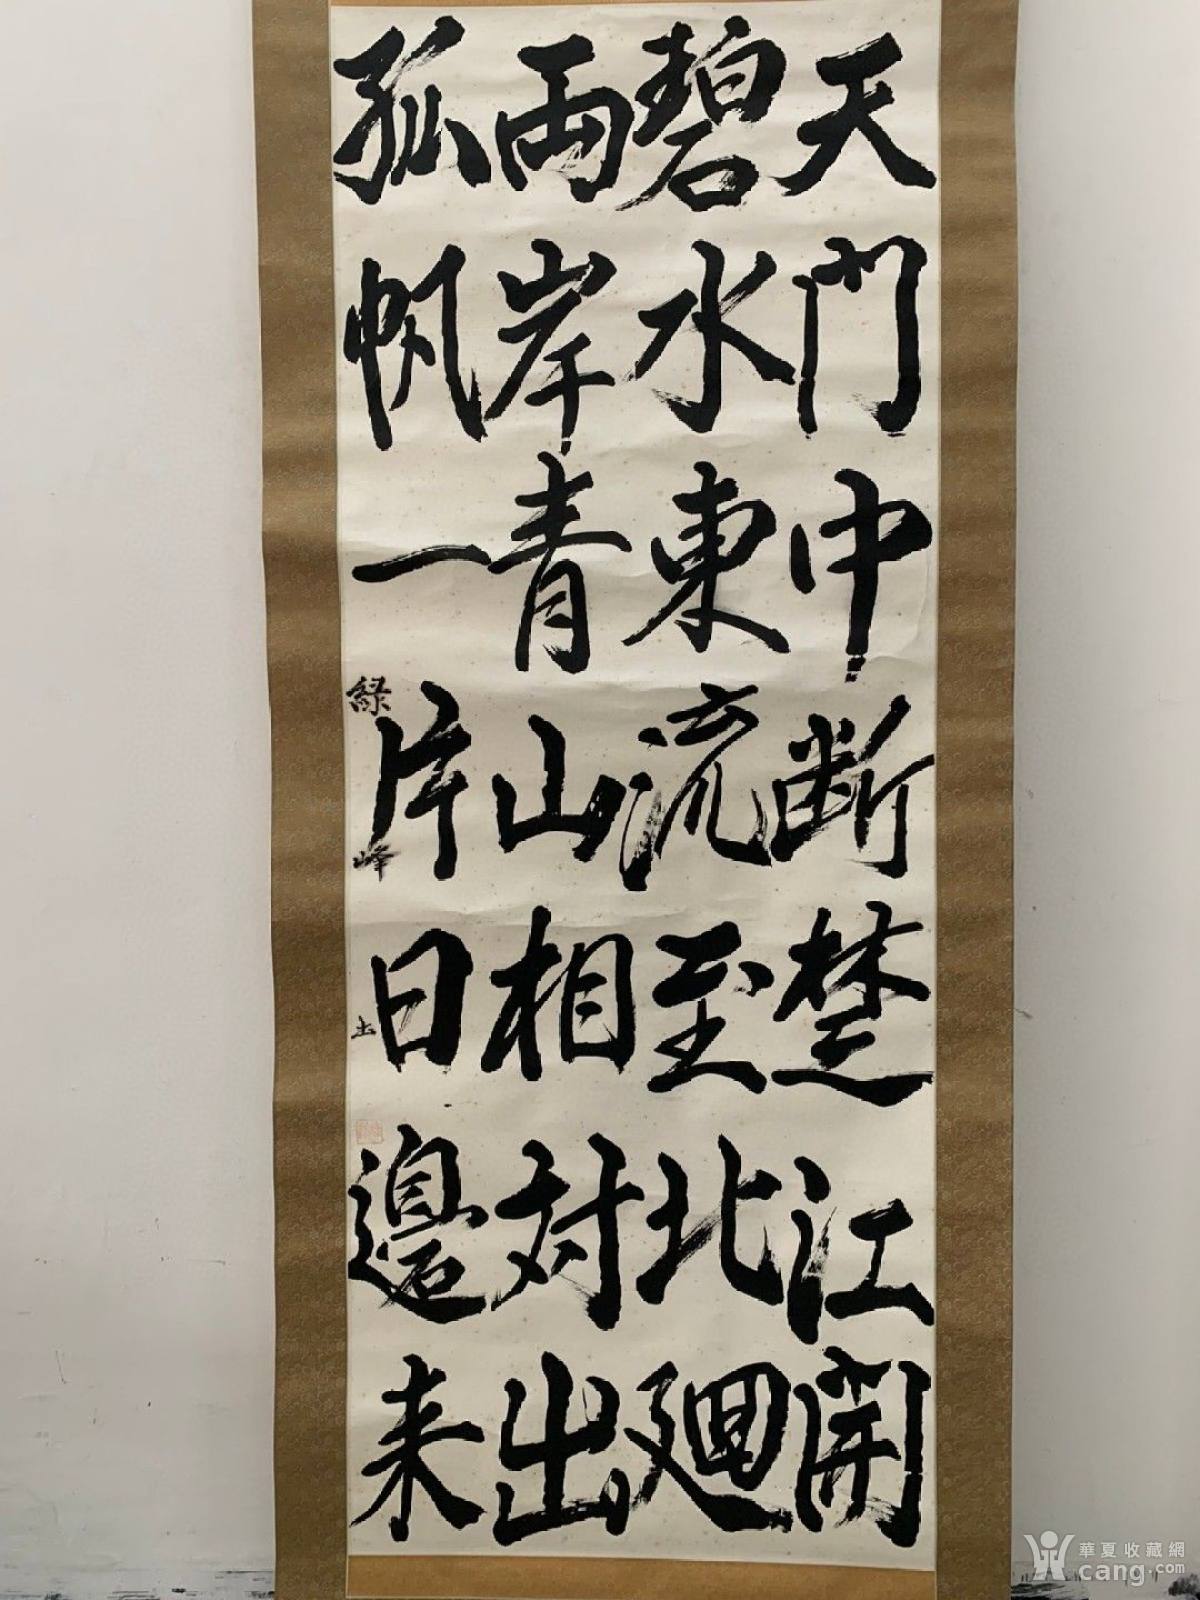 天門中断楚江開
碧水東流至北廻
兩岸青山相対出
孤帆一片日邊来
緑峰
華夏收藏網
cang.com